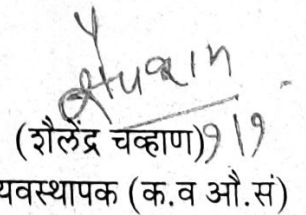 (शैलेंद्र चव्हाण) 9/9
यवस्थापक (क.व औ.सं)